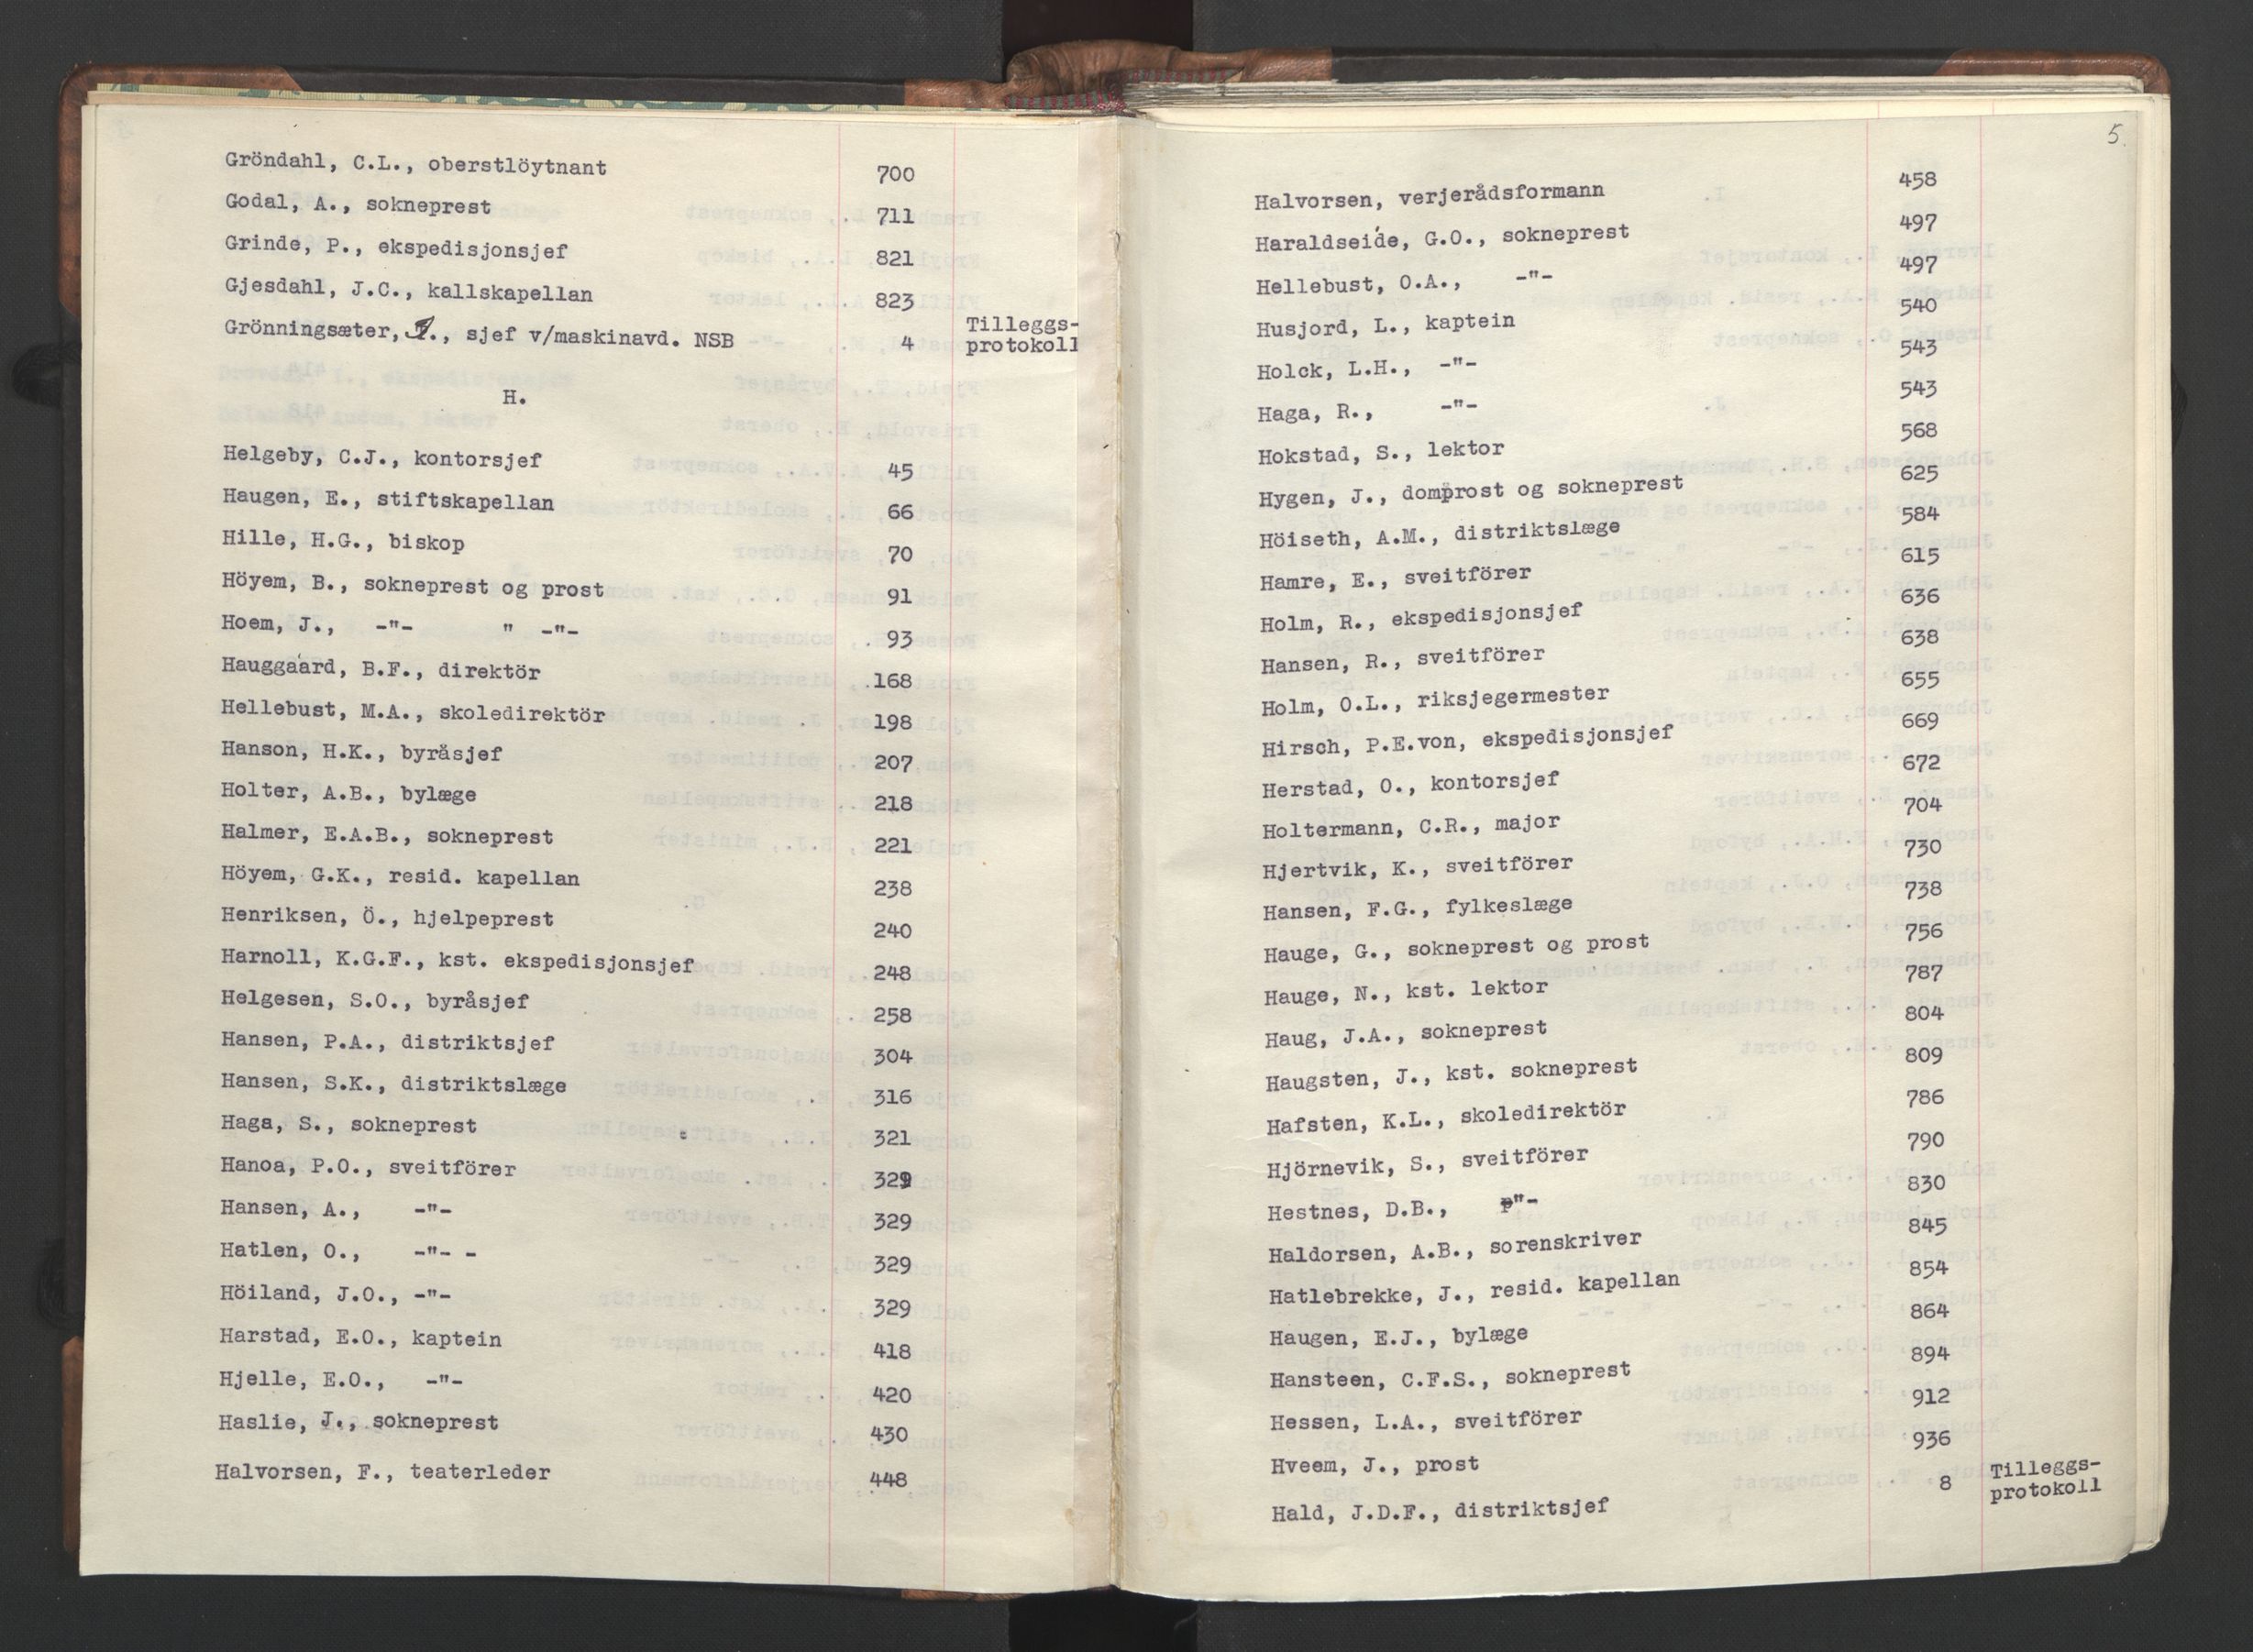 Gröndahl, C.L., oberstlöytnant 700
Godal, A., sokneprest 711
Grinde, P., ekspedisjonsjef 821
Gjesdahl, J.C., kallskapellan 823
Grönningsæter, J., sjef v/maskinavd. NSB 4 Tilleggs-
protokoll
H.
Helgeby, C.J., kontorsjef 45
Haugen, E., stiftskapellan 66
Hille, H.G., biskop 70
Höyem, B., sokneprest og prost 91
Hoem, J., -"- " -"- 93
Hauggaard, B.F., direktör 168
Hellebust, M.A., skoledirektör 198
Hanson, H.K., byråsjef 207
Holter, A.B., bylæge 218
Halmer, E.A.B., sokneprest 221
Höyem, G.K., resid. kapellan 238
Henriksen, Ö., hjelpeprest 240
Harnoll, K.G.F., kst. ekspedisjonsjef 248
Helgesen, S.O., byråsjef 258
Hansen, P.A., distriktsjef 304
Hansen, S.K., distriktslæge 316
Haga, S., sokneprest 321
Hanoa, P.O., sveitförer 329
Hansen, A., -"- 329
Hatlen, O., -"- - 329
Höiland, J.O., -"- 329
Harstad, E.O., kaptein 418
Hjelle, E.O., -"- 420
Haslie, J., sokneprest 430
Halvorsen, F., teaterleder 448
5.
Halvorsen, verjerådsformann 458
Haraldseide, G.O., sokneprest 497
Hellebust, O.A., -"- 497
Husjord, L., kaptein 540
Holck, L.H., -"- 543
Haga, R., -"- 543
Hokstad, S., lektor 568
Hygen, J., domprost og sokneprest 625
Höiseth, A.M., distriktslæge 584
Hamre, E., sveitförer 615
Holm, R., ekspedisjonsjef 636
Hansen, R., sveitförer 638
Holm, O.L., riksjegermester 655
Hirsch, P.E.von, ekspedisjonsjef 669
Herstad, O., kontorsjef 672
Holtermann, C.R., major 704
Hjertvik, K., sveitförer 730
Hansen, F.G., fylkeslæge 738
Hauge, G., sokneprest og prost 756
Hauge, N., kst. lektor 787
Haug, J.A., sokneprest 804
Haugsten, J., kst. sokneprest 809
Hafsten, K.L., skoledirektör 786
Hjörnevik, S., sveitförer 790
Hestnes, D.B., -"- 830
Haldorsen, A.B., sorenskriver 845
Hatlebrekke, J., resid. kapellan 854
Haugen, E.J., bylæge 864
Hansteen, C.F.S., sokneprest 894
Hessen, L.A., sveitförer 912
Hveem, J., prost 936
Hald, J.D.F., distriktsjef 8 Tilleggs-
protokoll